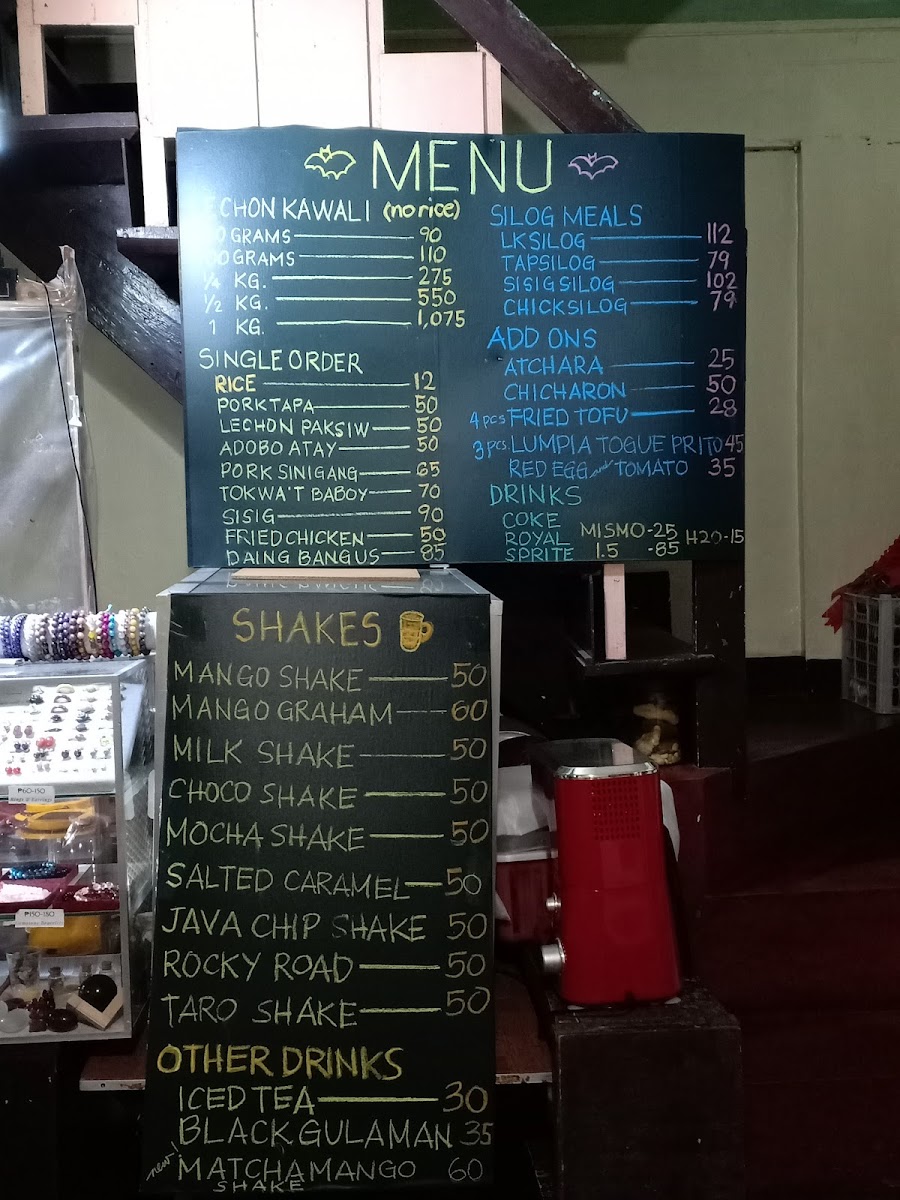 MENU
CHON KAWALI (no rice)
0 GRAMS 90
00 GRAMS 110
1/4 KG. 275
1/2 KG. 550
1 KG. 1,075
SINGLE ORDER
RICE 12
PORK TAPA 50
LECHON PAKSIW 50
ADOBO ATAY 50
PORK SINIGANG 65
TOKWA'T BABOY 70
SISIG 90
FRIED CHICKEN 50
DAING BANGUS 85
SILOG MEALS
LKSILOG 112
TAPSILOG 79
SISIGSILOG 102
CHICKSILOG 79
ADD ONS
ATCHARA 25
CHICHARON 50
4 pcs FRIED TOFU 28
3 pcs. LUMPIA TOGUE PRITO 45
RED EGG and TOMATO 35
DRINKS
COKE
ROYAL MISMO-25 H2O-15
SPRITE 1.5 -85
SHAKES
MANGO SHAKE 50
MANGO GRAHAM 60
MILK SHAKE 50
CHOCO SHAKE 50
MOCHA SHAKE 50
SALTED CARAMEL 50
JAVA CHIP SHAKE 50
ROCKY ROAD 50
TARO SHAKE 50
OTHER DRINKS
ICED TEA 30
BLACK GULAMAN 35
new! MATCHA MANGO 60
SHAKE
₱60-150
₱150-180